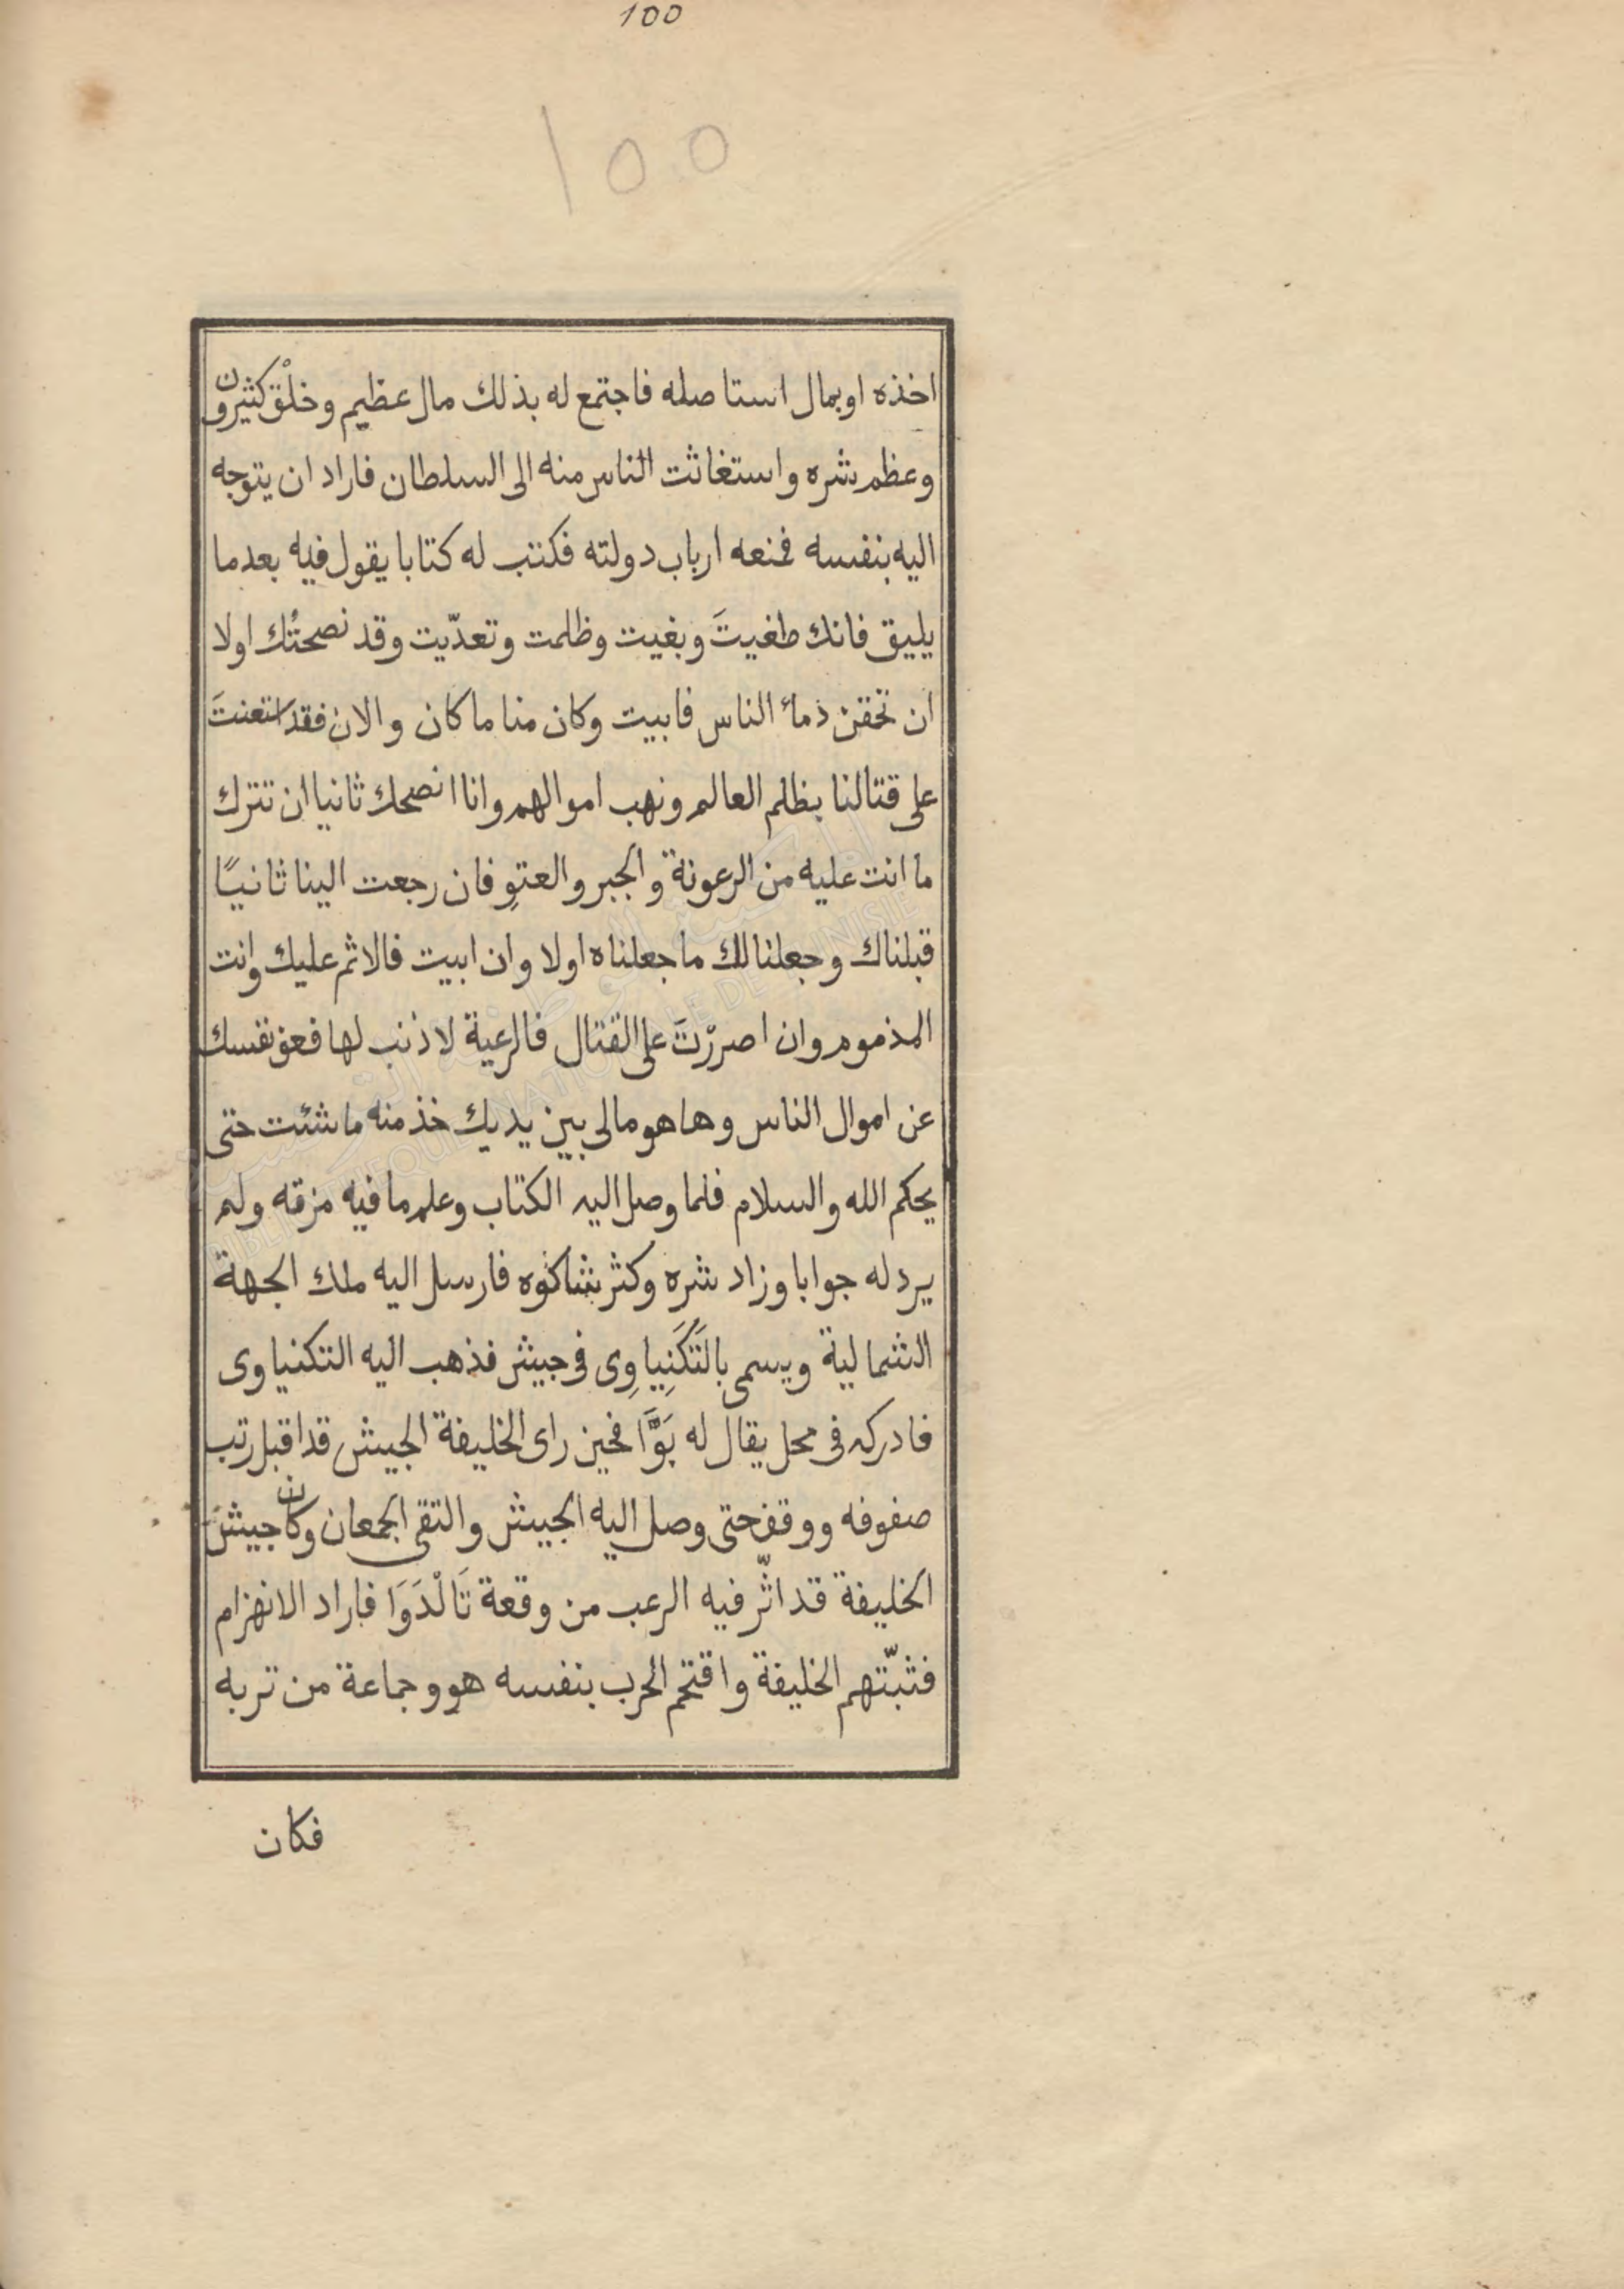 100
100
اخذه او بمال استاصله فاجتمع له بذلك مال عظيم وخلْق كثيرون
وعظم شره واستغاثت الناس منه الى السلطان فاراد ان يتوجه
اليه بنفسه فمنعه ارباب دولته فكتب له كتابا يقول فيه بعد ما
يليق فانك طغيتَ وبغيت وظلمت وتعدّيت وقد نصحتُك اولا
ان تحقن ذماء الناس فابيت وكان منا ما كان والان فقد استعنتَ
على قتالنا بظلم العالم ونهب اموالهم وانا انصحك ثانيا ان تترك
ما انت عليه من الرعونة والجبر والعتوِ فان رجعت الينا ثانيًا
قبلناك وجعلنا لك ما جعلناه اولا وان ابيت فالاثم عليك وانت
المذموم وان اصررْتَ على القتال فالرعية لا ذنب لها فعف نفسك
عن اموال الناس وها هو مالى بين يديك خذ منه ما شئت حتى
يحكم الله والسلام فلما وصل اليه الكتاب وعلم ما فيه مزقه ولم
يرد له جوابا وزاد شره وكثر شاكوه فارسل اليه ملك الجهة
الشمالية ويسمى بالتَكَنِياوِى فى جيش فذهب اليه التكنياوى
فادركه فى محل يقال له بَوَّا فحين راى الخليفة الجيش قد اقبل رتب
صفوفه ووقف حتى وصل اليه الجيش والتقى الجمعان وكان جيش
الخليفة قد اثّر فيه الرعب من وقعة تَالْدَوَا فاراد الانهزام
فثبّتهم الخليفة واقتحم الحرب بنفسه هو وجماعة من تربه
فكان